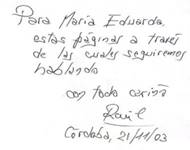 Para María Eduarda,
estas páginas a través
de las cuales seguiremos
hablando
con todo cariño
Raúl
Córdoba, 21/11/03